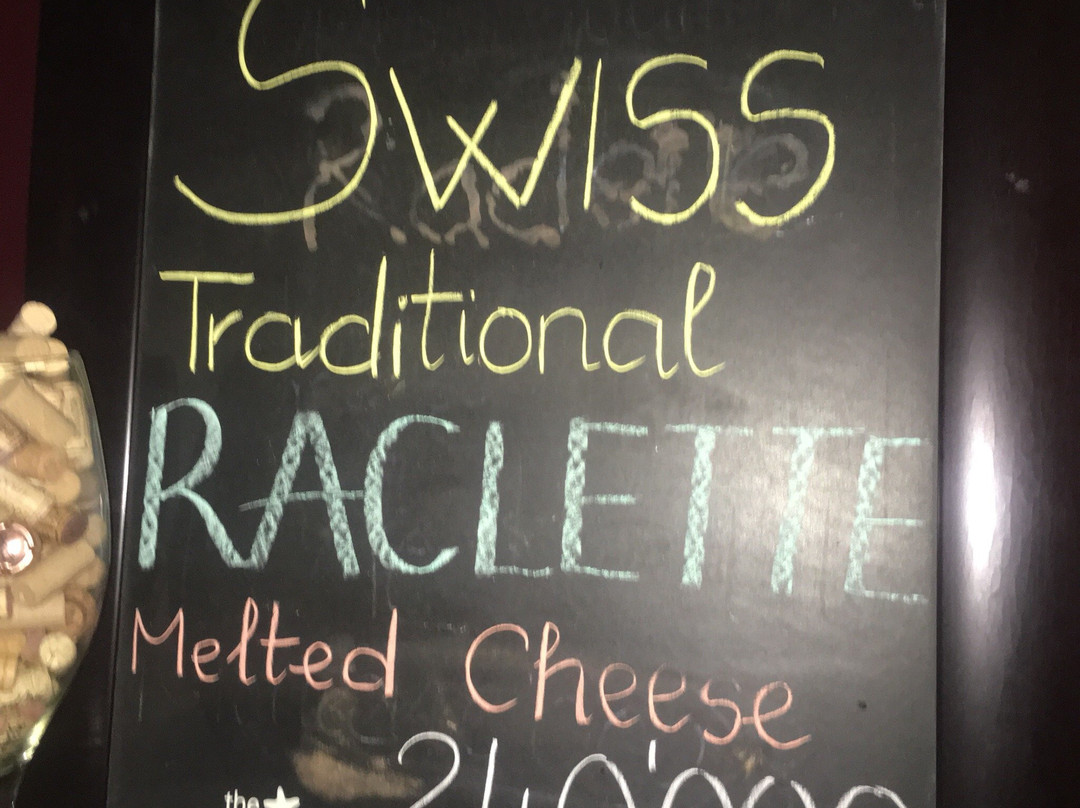 Swiss
Traditional
RACLETTE
Melted Cheese
the